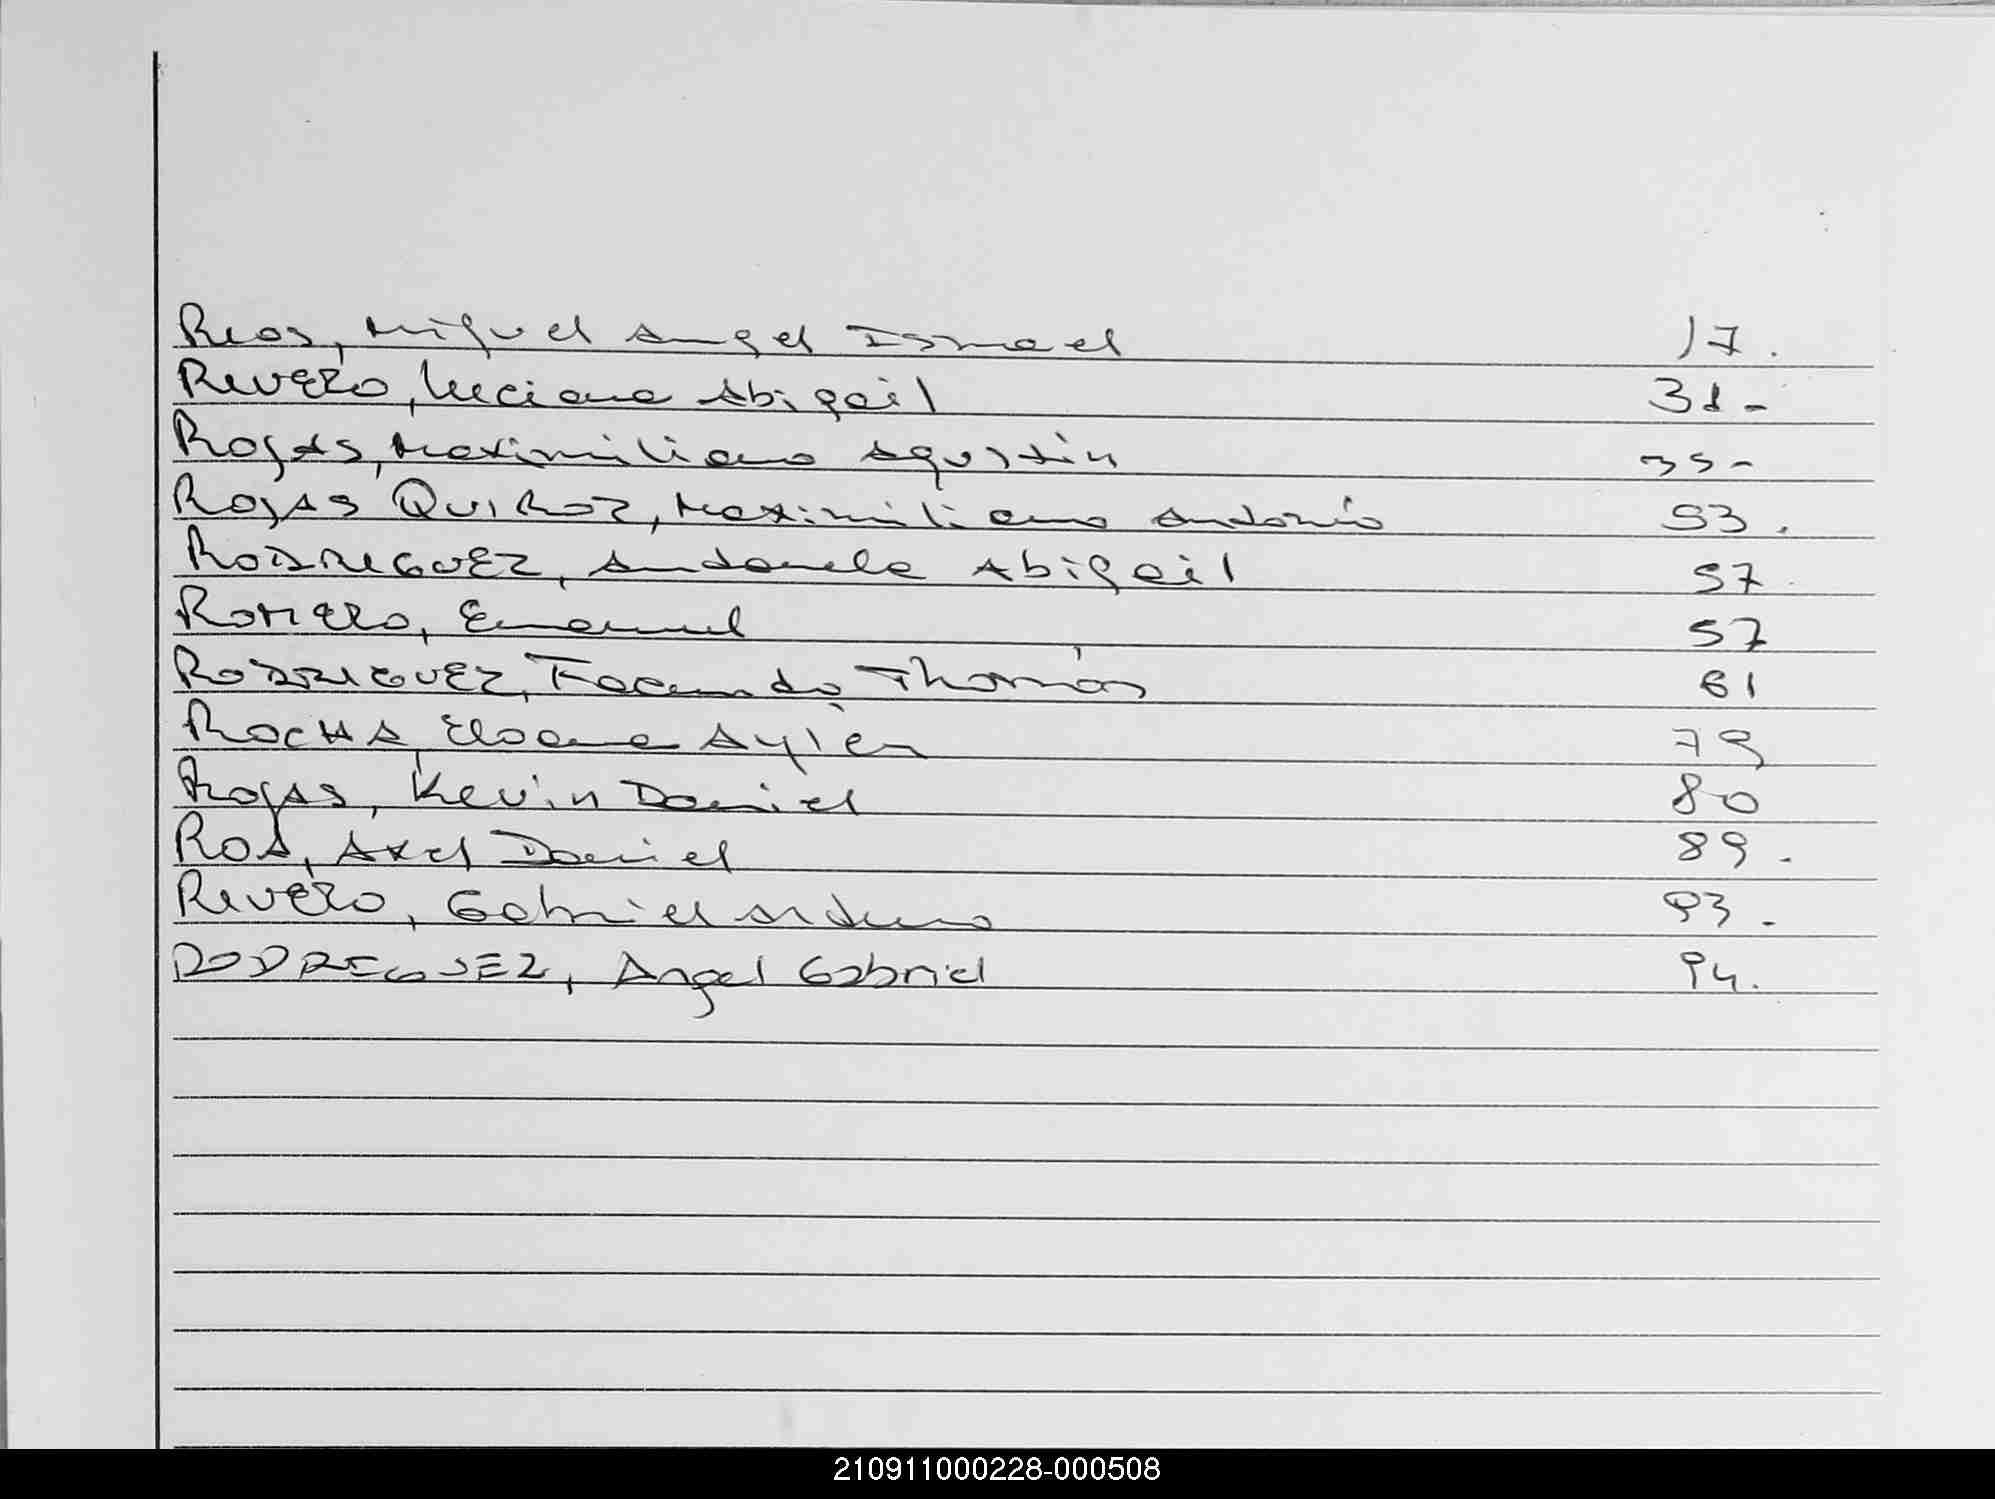 Rios, Miguel Angel Ismael 17.
RIVERO, Luciana Abigail 31-
ROJAS, Maximiliano Agustin 35-
ROJAS QUIROZ, Maximiliano Antonio 53.
RODRIGUEZ, Abigail 57
ROMERO, Emanuel 57
RODRIGUEZ, Facundo Thomás 61
ROCHA, Eloana Aylén 79
ROJAS, Kevin Daniel 80
ROA, Axel Daniel 89.
RIVERO, Gabriel Arturo 93.
RODRIGUEZ, Angel Gabriel 94.
210911000228-000508